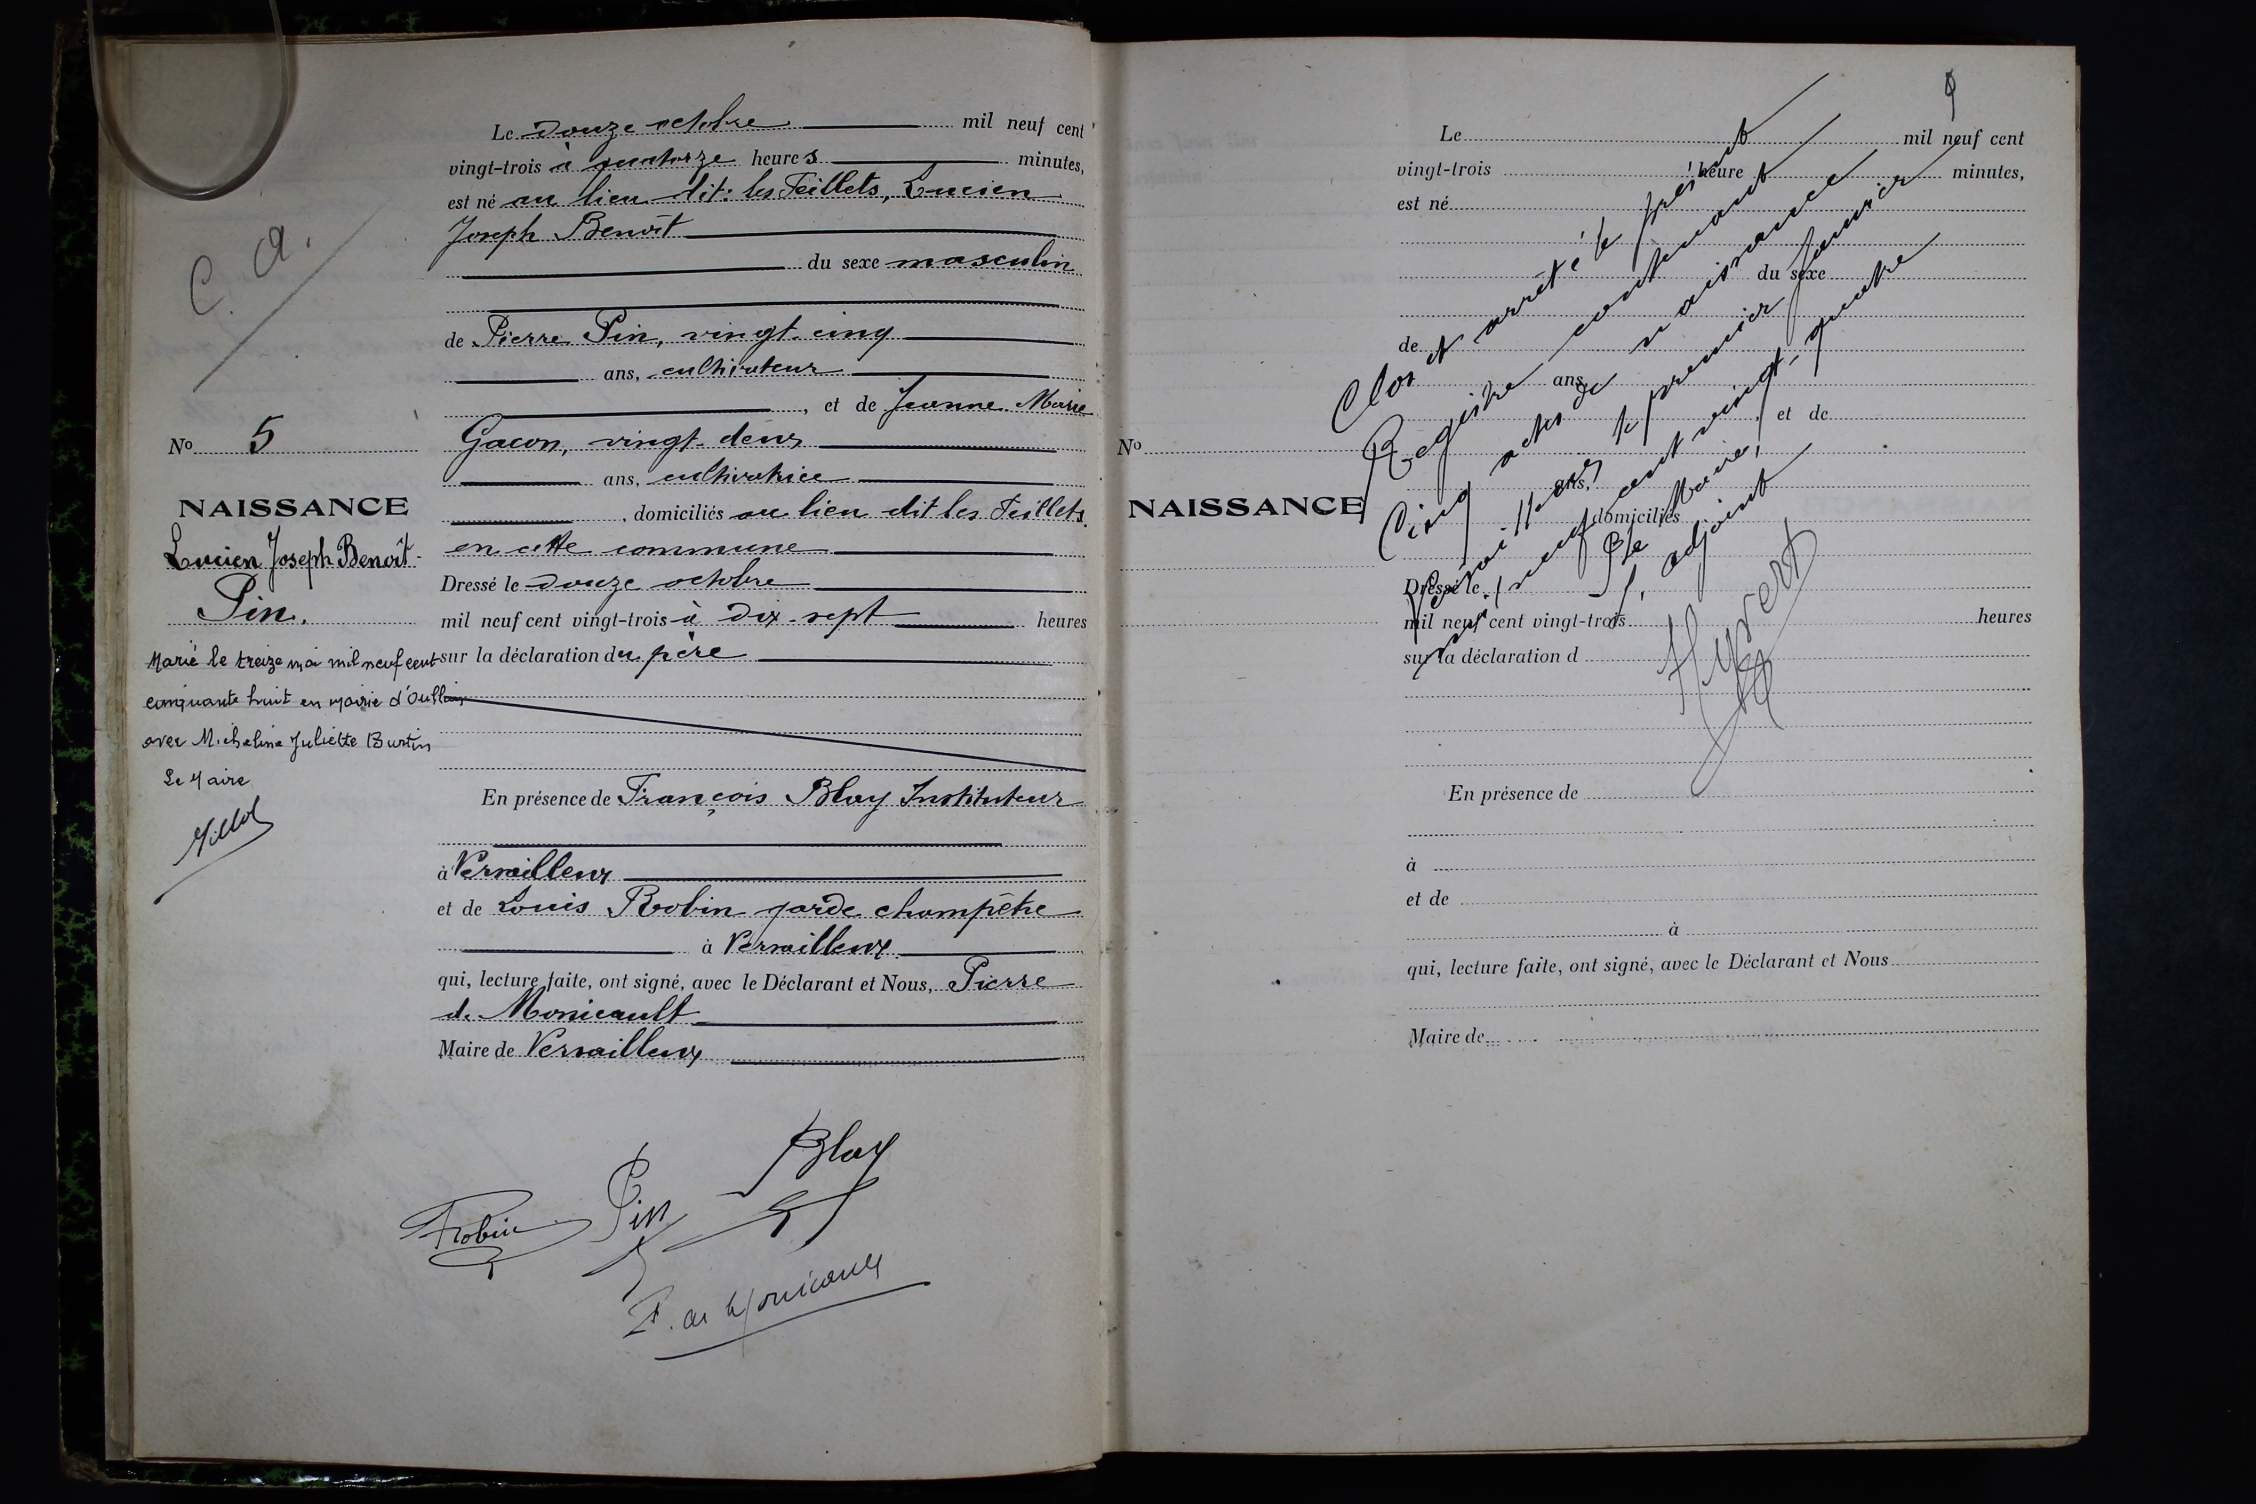 C. A.
N° 5
NAISSANCE
Lucien Joseph Benoît
Pin.
Marié le treize mai mil neuf cent
cinquante huit en mairie d'Oullins
avec Micheline Juliette Burtin
Le Maire
Le douze octobre mil neuf cent
vingt-trois à quatorze heures minutes,
est né au lieu dit: les Feillets, Lucien
Joseph Benoît
du sexe masculin
de Pierre Pin, vingt-cinq
ans, cultivateur
, et de Jeanne Marie
Gacon, vingt-deux
ans, cultivatrice
, domiciliés au lieu dit les Feillets
en cette commune
Dressé le douze octobre
mil neuf cent vingt-trois à dix-sept heures
sur la déclaration du père
En présence de François Blay Instituteur
à Versailleux
et de Louis Robin garde champêtre
à Versailleux
qui, lecture faite, ont signé, avec le Déclarant et Nous, Pierre
de Monicault
Maire de Versailleux
Blay
Pin
Robin
P. de Monicault
Le mil neuf cent
vingt-trois heure minutes,
est né
du sexe
de
ans,
et de
N°
ans,
NAISSANCE
domiciliés
Dressé le
mil neuf cent vingt-trois heures
sur la déclaration d
En présence de
à
et de
à
qui, lecture faite, ont signé, avec le Déclarant et Nous
Maire de
Clos et arrêté le présent
Registre contenant
Cinq actes de naissance
Versailleux le premier janvier
mil neuf cent vingt-quatre
Le Maire,
L'adjoint
Hyvert